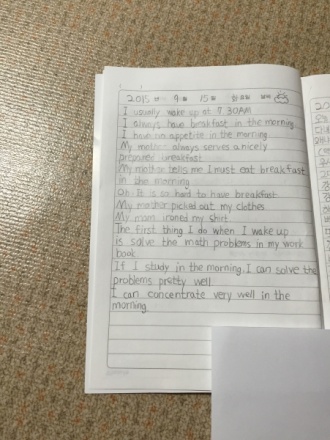 2015 년 9 월 15 일 화요일
I usually wake up at 7:30AM
I always have breakfast in the morning
I have no appetite in the morning
My mother always serves a nicely
prepared breakfast
My mother tells me I must eat breakfast
in the morning
Oh! It is so hard to have breakfast
My mother picked out my clothes
My mom ironed my shirt
The first thing I do when I wake up
is solve the math problems in my work
book
If I study in the morning, I can solve the
problems pretty well
I can concentrate very well in the
morning